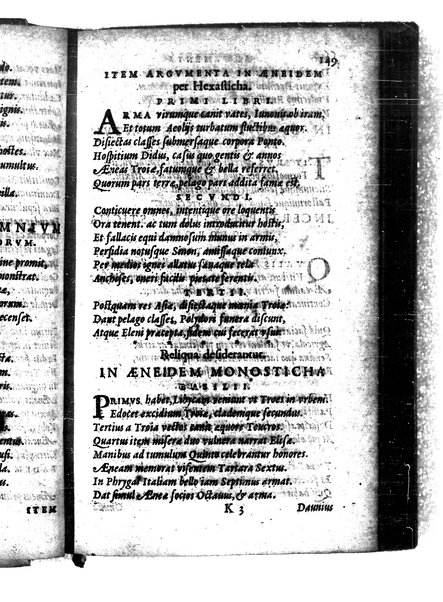 do.
tur.
ignis.
hostes.
VAFNMN
ORVM.
ine promit,
onstrat.
recenset.
ITEM
149
ITEM ARGVMENTA IN ÆNEIDEM
per Hexasticha.
PRIMI LIBRI.
ARMA virumque canit vates, Iunonis ob iram,
Et totum Aeolijs turbatum fluctibus æquor.
Disiectas classes submersaque corpora Ponto.
Hospitium Didus, casus quo gentis & annos
Æneas Troiæ, fatumque & bella referret.
Quorum pars terræ, pelago pars addita famæ est.
SECVNDI.
Conticuere omnes, intentique ore loquentis
Ora tenent. ac tum dolus introducitur hostis,
Et fallacis equi damnosum munus in armis,
Perfidia notusque Sinon, amissaque coniunx.
Per medios ignes allatus
Anchises, oneri facilis pietate ferentis.
TERTII.
Postquam res Asiæ, disiectaque mœnia Troiæ:
Dant pelago classes, Polydori funera discunt,
Atque Eleni præcepta, fidem cui fecerat vsus.
Reliqua desiderantur.
IN ÆNEIDEM MONOSTICHA
BASILII.
PRIMVS habet, Libycam veniunt vt Troes in vrbem.
Edocet excidium Troiæ, cladomque secundus.
Tertius a Troia vectos canit æquore Teucros.
Quartus item miseræ duo vulnera narrat Elisæ.
Manibus ad tumulum Quinto celebrantur honores.
Æneam memorat visentem Tartara Sextus.
In Phrygas Italiam bello iam Septimus armat.
Dat simul Æneæ socios Octauus, & arma.
K 3 Daunius